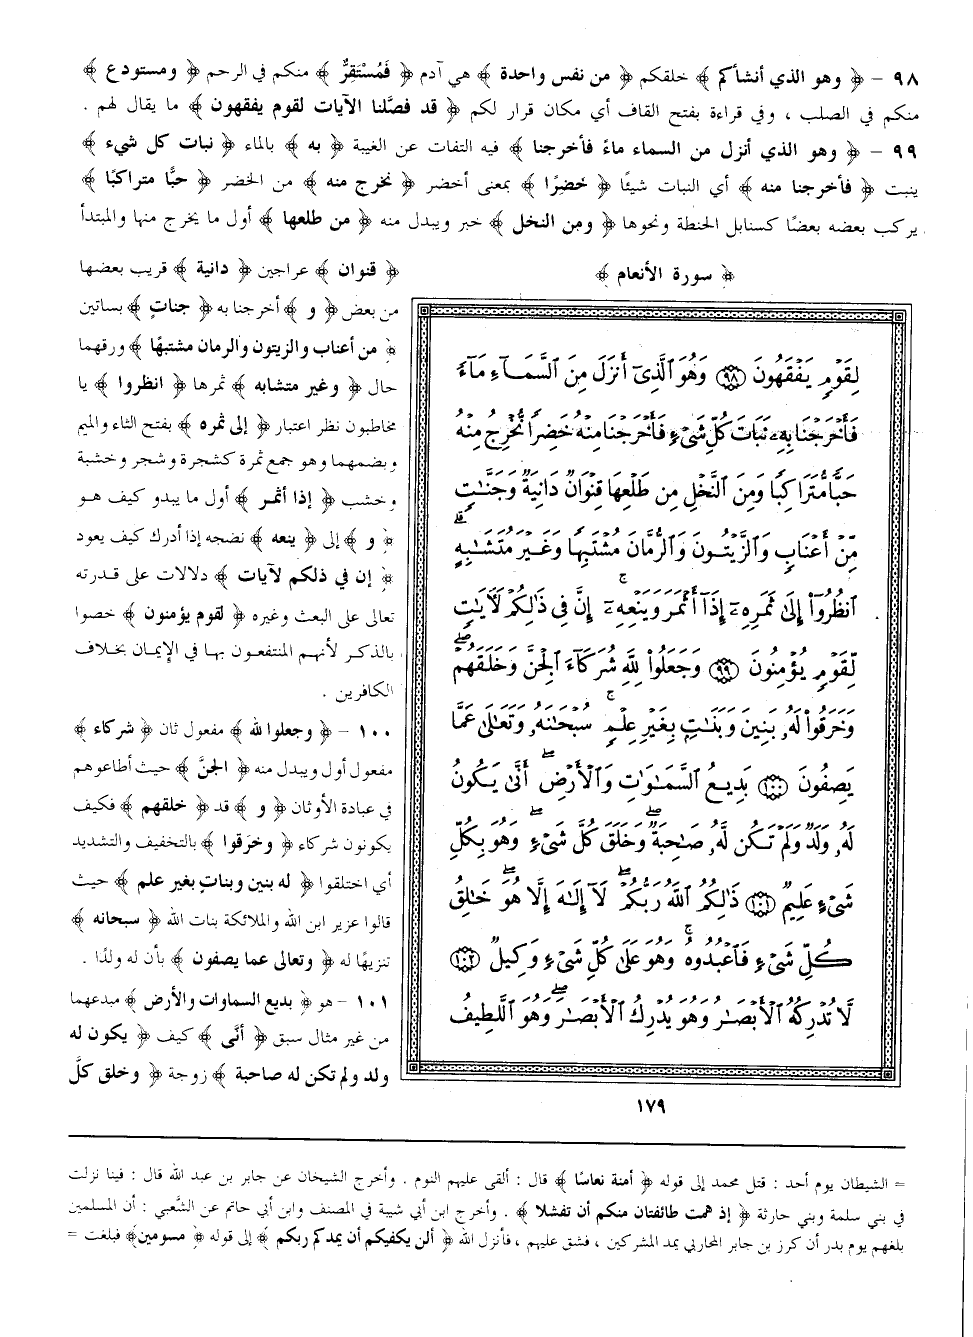 ٩٨ - ﴿ وهو الذي أنشأكم ﴾ خلقكم ﴿ من نفس واحدة ﴾ هي آدم ﴿ فَمُسْتَقِرٌّ ﴾ منكم في الرحم ﴿ ومستودع ﴾
منكم في الصلب ، وفي قراءة بفتح القاف أي مكان قرار لكم ﴿ قد فصَّلنا الآيات لقوم يفقهون ﴾ ما يقال لهم .
٩٩ - ﴿ وهو الذي أنزل من السماء ماءً فأخرجنا ﴾ فيه التفات عن الغيبة ﴿ به ﴾ بالماء ﴿ نبات كل شيء ﴾
ينبت ﴿ فأخرجنا منه ﴾ أي النبات شيئًا ﴿ خَضِرًا ﴾ بمعنى أخضر ﴿ نخرج منه ﴾ من الخضر ﴿ حبًّا متراكبًا ﴾
يركب بعضه بعضًا كسنابل الحنطة ونحوها ﴿ ومن النخل ﴾ خبر ويبدل منه ﴿ من طلعها ﴾ أول ما يخرج منها والمبتدأ
﴿ سورة الأنعام ﴾
لِقَوْمٍ يَفْقَهُونَ ٩٨ وَهُوَ ٱلَّذِىٓ أَنزَلَ مِنَ ٱلسَّمَآءِ مَآءً
فَأَخْرَجْنَا بِهِۦ نَبَاتَ كُلِّ شَىْءٍ فَأَخْرَجْنَا مِنْهُ خَضِرًا نُّخْرِجُ مِنْهُ
حَبًّا مُّتَرَاكِبًا وَمِنَ ٱلنَّخْلِ مِن طَلْعِهَا قِنْوَانٌ دَانِيَةٌ وَجَنَّـٰتٍ
مِّنْ أَعْنَابٍ وَٱلزَّيْتُونَ وَٱلرُّمَّانَ مُشْتَبِهًا وَغَيْرَ مُتَشَـٰبِهٍ
ٱنظُرُوٓا۟ إِلَىٰ ثَمَرِهِۦٓ إِذَآ أَثْمَرَ وَيَنْعِهِۦٓ إِنَّ فِى ذَٰلِكُمْ لَـَٔايَـٰتٍ
لِّقَوْمٍ يُؤْمِنُونَ ٩٩ وَجَعَلُوا۟ لِلَّهِ شُرَكَآءَ ٱلْجِنَّ وَخَلَقَهُمْ
وَخَرَقُوا۟ لَهُۥ بَنِينَ وَبَنَـٰتٍۭ بِغَيْرِ عِلْمٍ سُبْحَـٰنَهُۥ وَتَعَـٰلَىٰ عَمَّا
يَصِفُونَ ١٠٠ بَدِيعُ ٱلسَّمَـٰوَٰتِ وَٱلْأَرْضِ أَنَّىٰ يَكُونُ
لَهُۥ وَلَدٌ وَلَمْ تَكُن لَّهُۥ صَـٰحِبَةٌ وَخَلَقَ كُلَّ شَىْءٍ وَهُوَ بِكُلِّ
شَىْءٍ عَلِيمٌ ١٠١ ذَٰلِكُمُ ٱللَّهُ رَبُّكُمْ لَآ إِلَـٰهَ إِلَّا هُوَ خَـٰلِقُ
كُلِّ شَىْءٍ فَٱعْبُدُوهُ وَهُوَ عَلَىٰ كُلِّ شَىْءٍ وَكِيلٌ ١٠٢
لَّا تُدْرِكُهُ ٱلْأَبْصَـٰرُ وَهُوَ يُدْرِكُ ٱلْأَبْصَـٰرَ وَهُوَ ٱللَّطِيفُ
١٧٩
﴿ قنوان ﴾ عراجين ﴿ دانية ﴾ قريب بعضها
من بعض ﴿ و ﴾ أخرجنا به ﴿ جناتٍ ﴾ بساتين
﴿ من أعناب والزيتون والرمان مشتبهًا ﴾ ورقهما
حال ﴿ وغير متشابه ﴾ ثمرها ﴿ انظروا ﴾ يا
مخاطبون نظر اعتبار ﴿ إلى ثمره ﴾ بفتح الثاء والميم
وبضمهما وهو جمع ثمرة كشجرة وشجر وخشبة
وخشب ﴿ إذا أثمـر ﴾ أول ما يبدو كيف هـو
﴿ و ﴾ إلى ﴿ ينعه ﴾ نضجه إذا أدرك كيف يعود
﴿ إن في ذلكم لآيات ﴾ دلالات على قـدرته
تعالى على البعث وغيره ﴿ لقوم يؤمنون ﴾ خصوا
بالذكـر لأنهـم المنتفعـون بهـا في الإيمـان بخـلاف
الكافرين .
١٠٠ - ﴿ وجعلوا لله ﴾ مفعول ثان ﴿ شركاء ﴾
مفعول أول ويبدل منه ﴿ الجنَّ ﴾ حيث أطاعوهم
في عبادة الأوثان ﴿ و ﴾ قد ﴿ خلقهم ﴾ فكيف
يكونون شركاء ﴿ وخرَقوا ﴾ بالتخفيف والتشديد
أي اختلقوا ﴿ له بنين وبناتٍ بغير علم ﴾ حيث
قالوا عزير ابن الله والملائكة بنات الله ﴿ سبحانه ﴾
تنزيهًا له ﴿ وتعالى عما يصفون ﴾ بأن له ولدًا .
١٠١ - هو ﴿ بديع السماوات والأرض ﴾ مبدعهما
من غير مثال سبق ﴿ أنَّى ﴾ كيف ﴿ يكون له
ولد ولم تكن له صاحبة ﴾ زوجة ﴿ وخلق كلَّ
= الشيطان يوم أحد : قتل محمد إلى قوله ﴿ أمنة نعاسًا ﴾ قال : ألقى عليهم النوم . وأخرج الشيخان عن جابر بن عبد الله قال : فينا نزلت
في بني سلمة وبني حارثة ﴿ إذ همت طائفتان منكم أن تفشلا ﴾ . وأخرج ابن أبي شيبة في المصنف وابن أبي حاتم عن الشَّعبي : أن المسلمين
بلغهم يوم بدر أن كرز بن جابر المحاربي يمد المشركين ، فشق عليهم ، فأنزل الله ﴿ ألن يكفيكم أن يمدكم ربكم ﴾ إلى قوله ﴿ مسومين﴾ فبلغت =